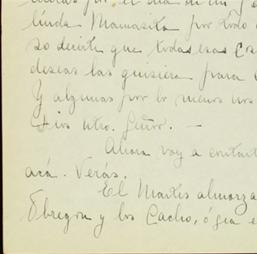 por, el día de mi
linda Mamasita por todo
so decirte que todas esas cos
deseas las quisiera para
Y algunas por lo menos nos
Dios ntro. Señor. —
Ahora voy a contart
acá. Verás.
El Martes almorza
Obregon y los Cacho, ó sea e